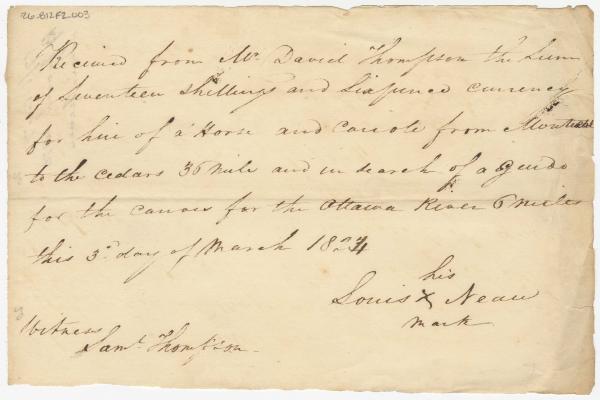 26.B12F2.003
Received from Mr. David Thompson the Sum
of Seventeen Shillings and Sixpence currency
for hire of a Horse and cariole from Montreal
to the cedars 36 mile and in search of a Guide
for the canoes for the Ottawa River 6 miles
this 3d. day of March 1824
his
Louis X Neau
mark
Witness
Saml. Thompson